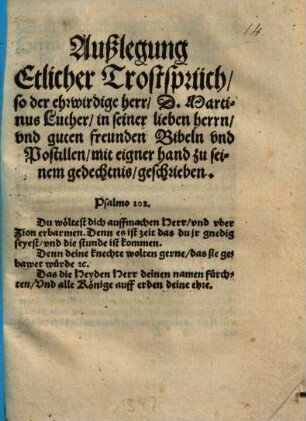 14.
Außlegung
Etlicher Trostsprüch/
so der ehrwirdige herr/ D. Marti-
nus Luther/ in seiner lieben herrn/
vnd guten freunden Bibeln vnd
Postillen/ mit eigner hand zu sei-
nem gedechtnis/ geschrieben.
Psalmo 102.
Du wöltest dich auffmachen Herr/ vnd vber
Zion erbarmen. Denn es ist zeit das du jr gnedig
seyest/ vnd die stunde ist kommen.
Denn deine knechte wolten gerne/ das sie ge-
bawet würde ꝛc.
Das die Heyden Herr deinen namen fürch-
ten/ Vnd alle Könige auff erden deine ehre.
1547